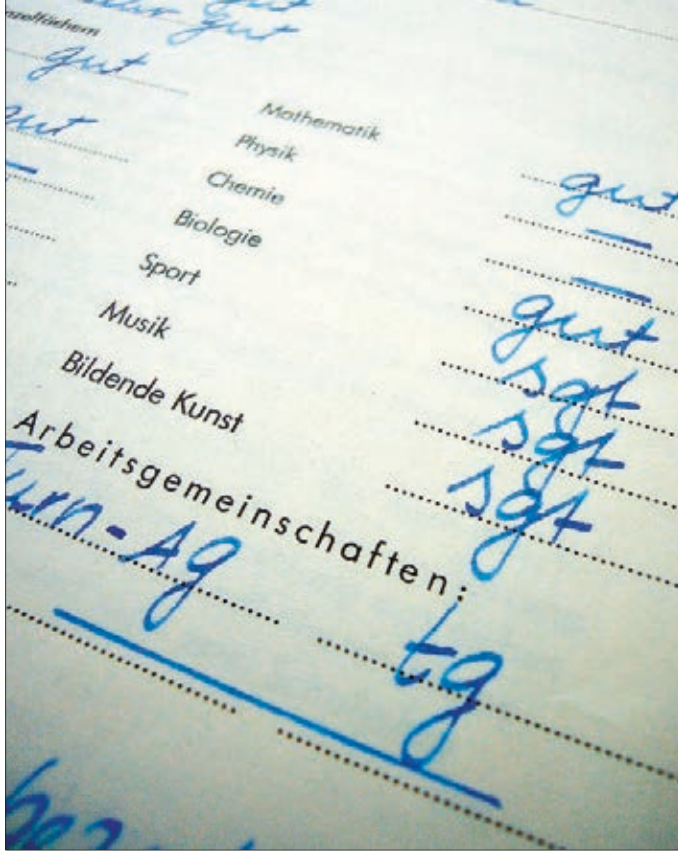 gut
nzelfächern
gut
gut
Mathematik gut
Physik —
Chemie —
Biologie gut
Sport sgt
Musik sgt
Bildende Kunst sgt
Arbeitsgemeinschaften:
Turn-Ag tg